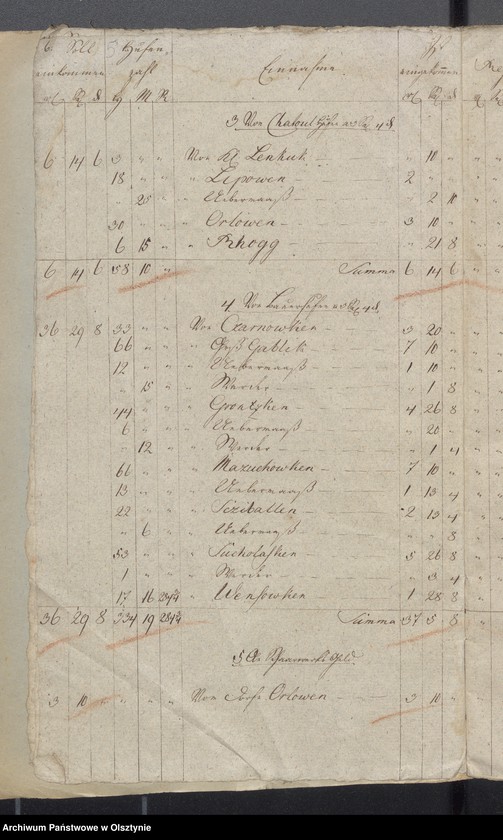 Soll einkommen | Hufen Zahl | Einnahme | Ist einkommen
rt. | | | H | M | R
3. Von Chatoul
6 14 6 | 3 " " | Von Kl Lenkuk — 10 "
18 " " | Lipowen — 2 " "
" 25 " | Uebermaaß — " 2 10
30 " " | Orlowen — 3 10 "
6 15 " | Rhogg — " 21 8
6 14 6 | 58 10 " | Summa 6 14 6
4. Von
36 29 8 | 33 " " | Von Czarnowken — 3 20 "
66 " " | Groß Gablick — 7 10 "
12 " " | Uebermaaß — 1 10 "
" 15 " | Werder — " 1 8
44 " " | Gronsken — 4 26 8
6 " " | Uebermaaß — " 20 "
" 12 " | Werder — " 1 4
66 " " | Mazuchowken — 7 10 "
13 " " | Uebermaaß — 1 13 4
22 " " | Sczeballen — 2 13 4
" 6 " | Uebermaaß — " " 8
53 " " | Sucholasken — 5 26 8
1 " " | Werder — " 3 4
17 16 | Wensowken — 1 28 8
36 29 8 | 334 19 | Summa 37 5 8
5. An Geld
3 10 " | " " " | Von Dorfe Orlowen — 3 10 "
Archiwum Państwowe w Olsztynie